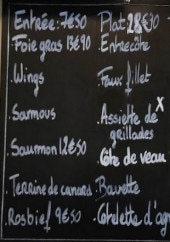 Entrée: 7€50
Foie gras 13€90
.Wings
.Sarmous
.Saumon 12€50
.Terrine de canard
.Rosbief 9€50
Plat: 28€90
.Entrecôte
.Faux fillet
X
.Assiette de grillades
.Côte de veau
.Bavette
.Côtelette d'agn